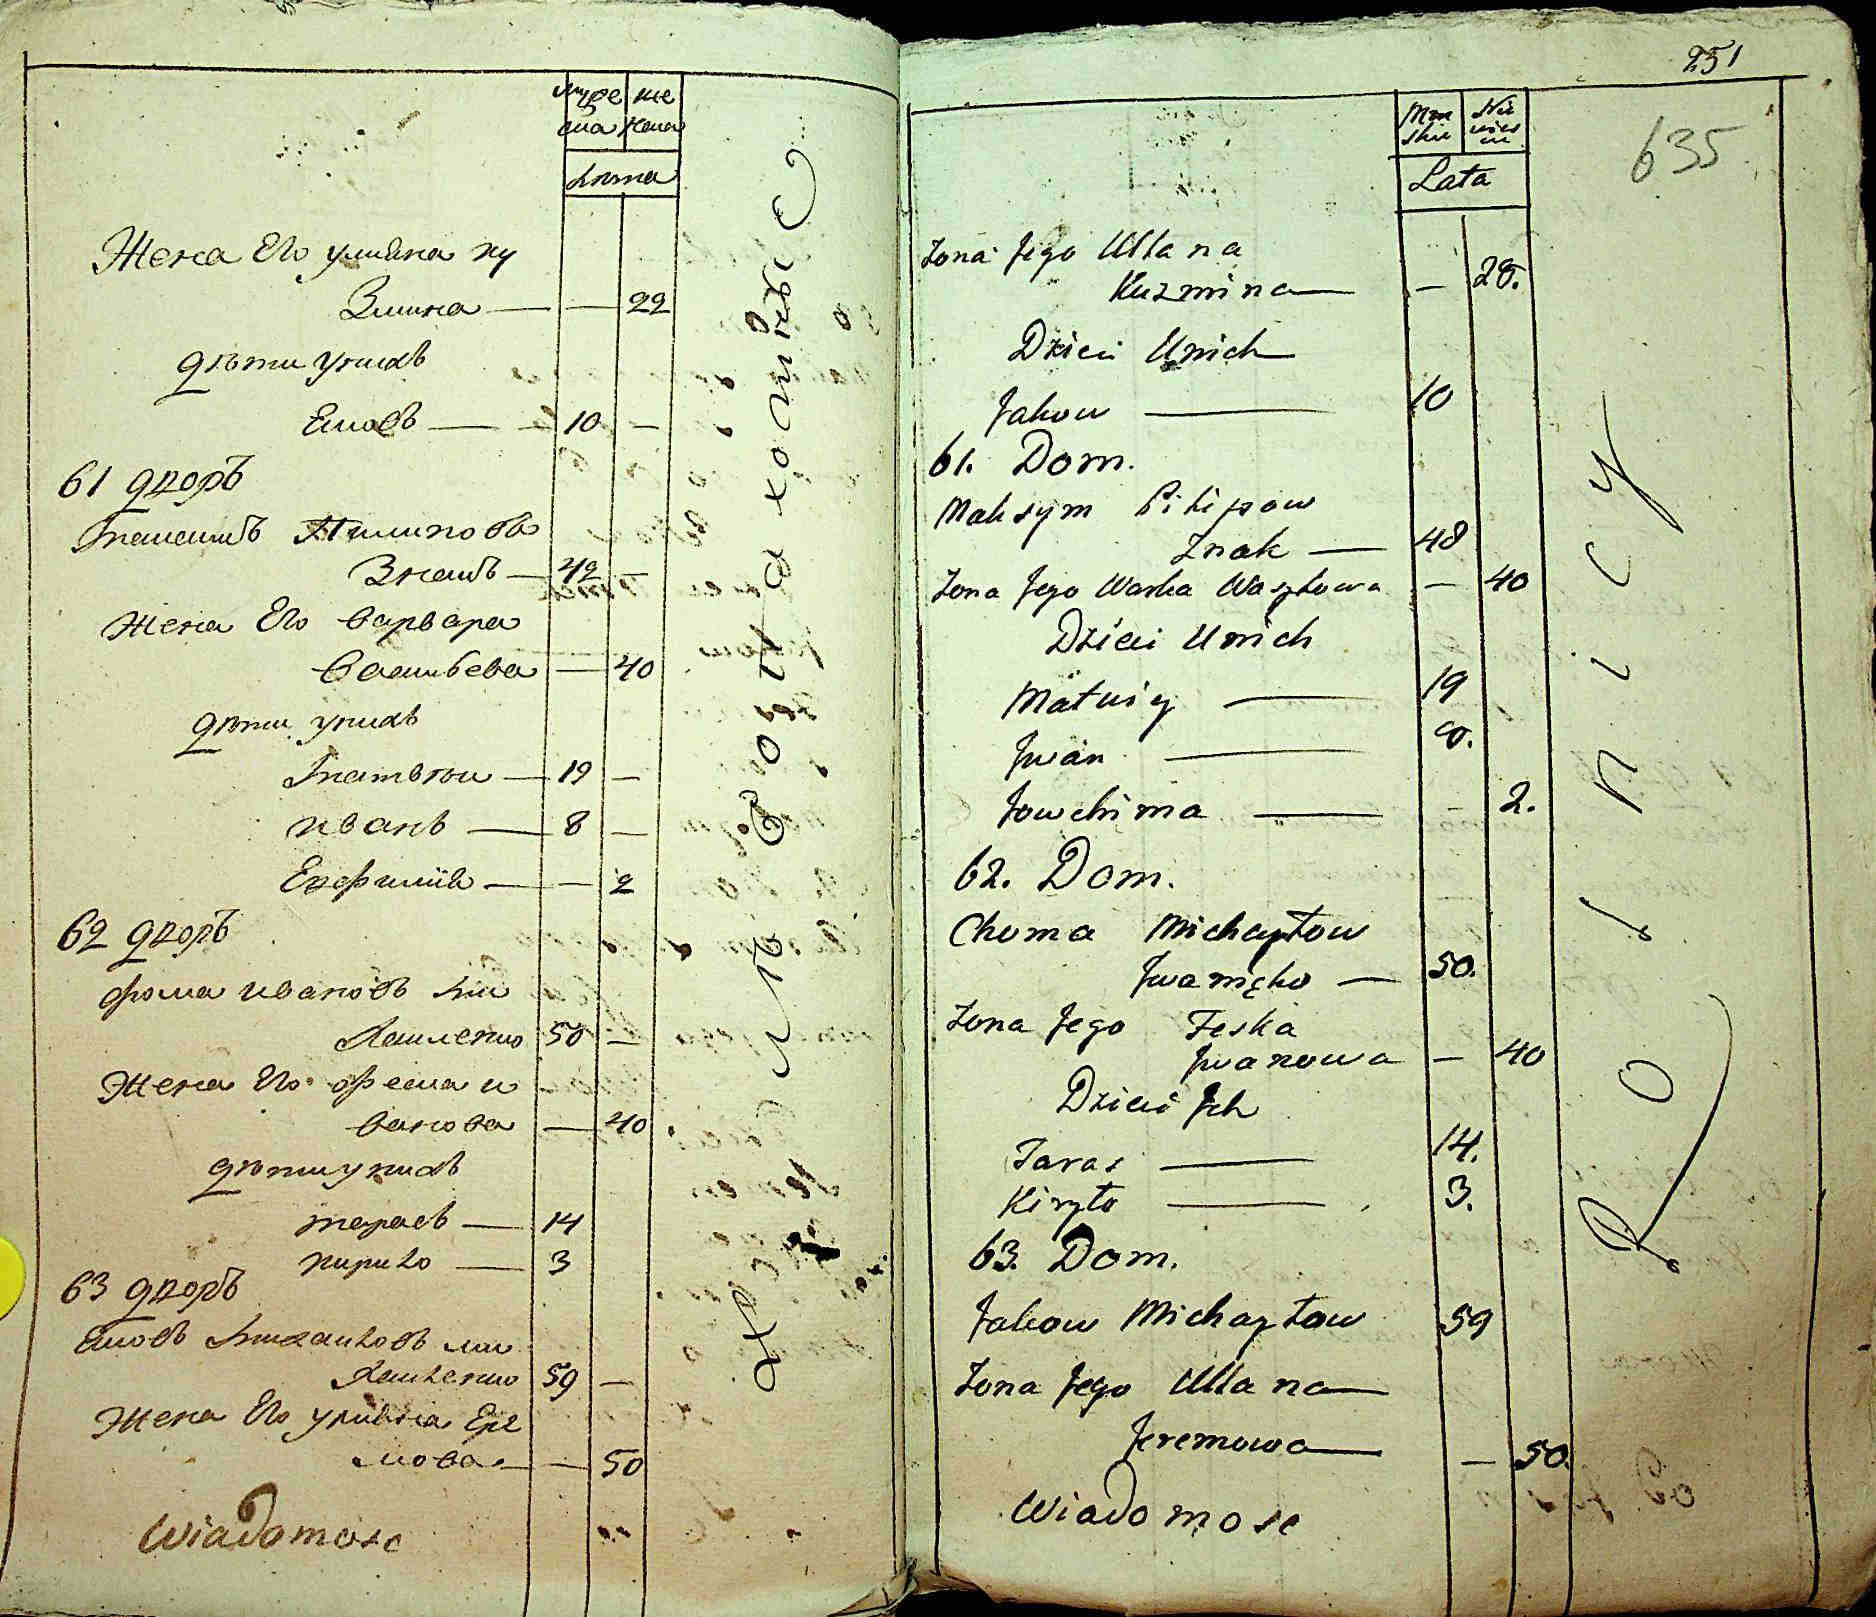 муже
ска
же
нска
лѣта
Жена Его улияна ку
змина — — 22
дѣти у нихъ
Яковъ — 10 —
61 дворъ
Максимъ Пилиповъ
Знакъ — 42 —
Жена Его Варвара
Васильева — 40
дѣти у нихъ
Матвѣи — 19 —
иванъ — 8 —
Евфимія — — 2
62 дворъ
фома ивановъ ми
хаиленко 50 —
Жена Его феска и
ванова — 40
дѣти у нихъ
тарасъ — 14
кирило — 3
63 дворъ
Яковъ михаиловъ ми
хаиленко 59 —
Жена Его улияна Ере
мова — — 50
Wiadomosc
251
635
Męż
skie
Nie
wies
cie
Lata
Zona Jego Ullana
Kuzmina — — 28.
Dzieci Unich
Jakow — 10
61. Dom.
Maksym Pilipow
Znak — 48
Zona Jego Warka Waszkowa — 40
Dzieci Unich
Matwiy — 19
Jwan — 8.
Jowchima — — 2.
62. Dom.
Choma Michayłow
Jwanięko — 50.
Zona Jego Feska
Jwanowa — 40
Dzieci Jch
Taras — 14.
Kiryło — 3.
63. Dom.
Jakow Michayłow 59
Zona Jego Ullana
Jeremowa — 50.
Wiadomosc
Rolnicy